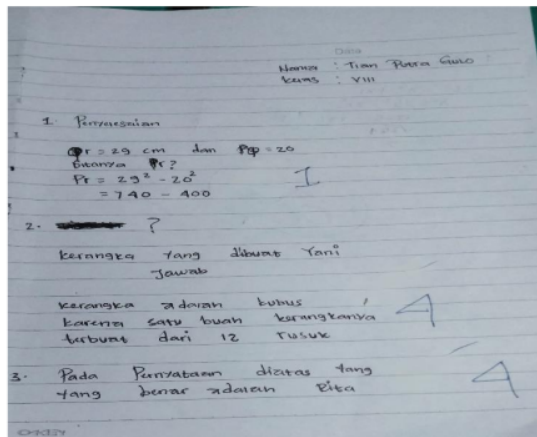 Nama : Tian Putra Gulo
Kelas : VIII
1. Penyelesaian
Qr = 29 cm dan Pqp = 20
Ditanya Pr?
Pr = 29² - 20²
= 740 - 400
1
2. ?
kerangka yang dibuat Yani
Jawab
kerangka adalah kubus
karena satu buah kerangkanya
terbuat dari 12 rusuk
4
3. Pada Pernyataan diatas yang
yang benar adalah Rita
4